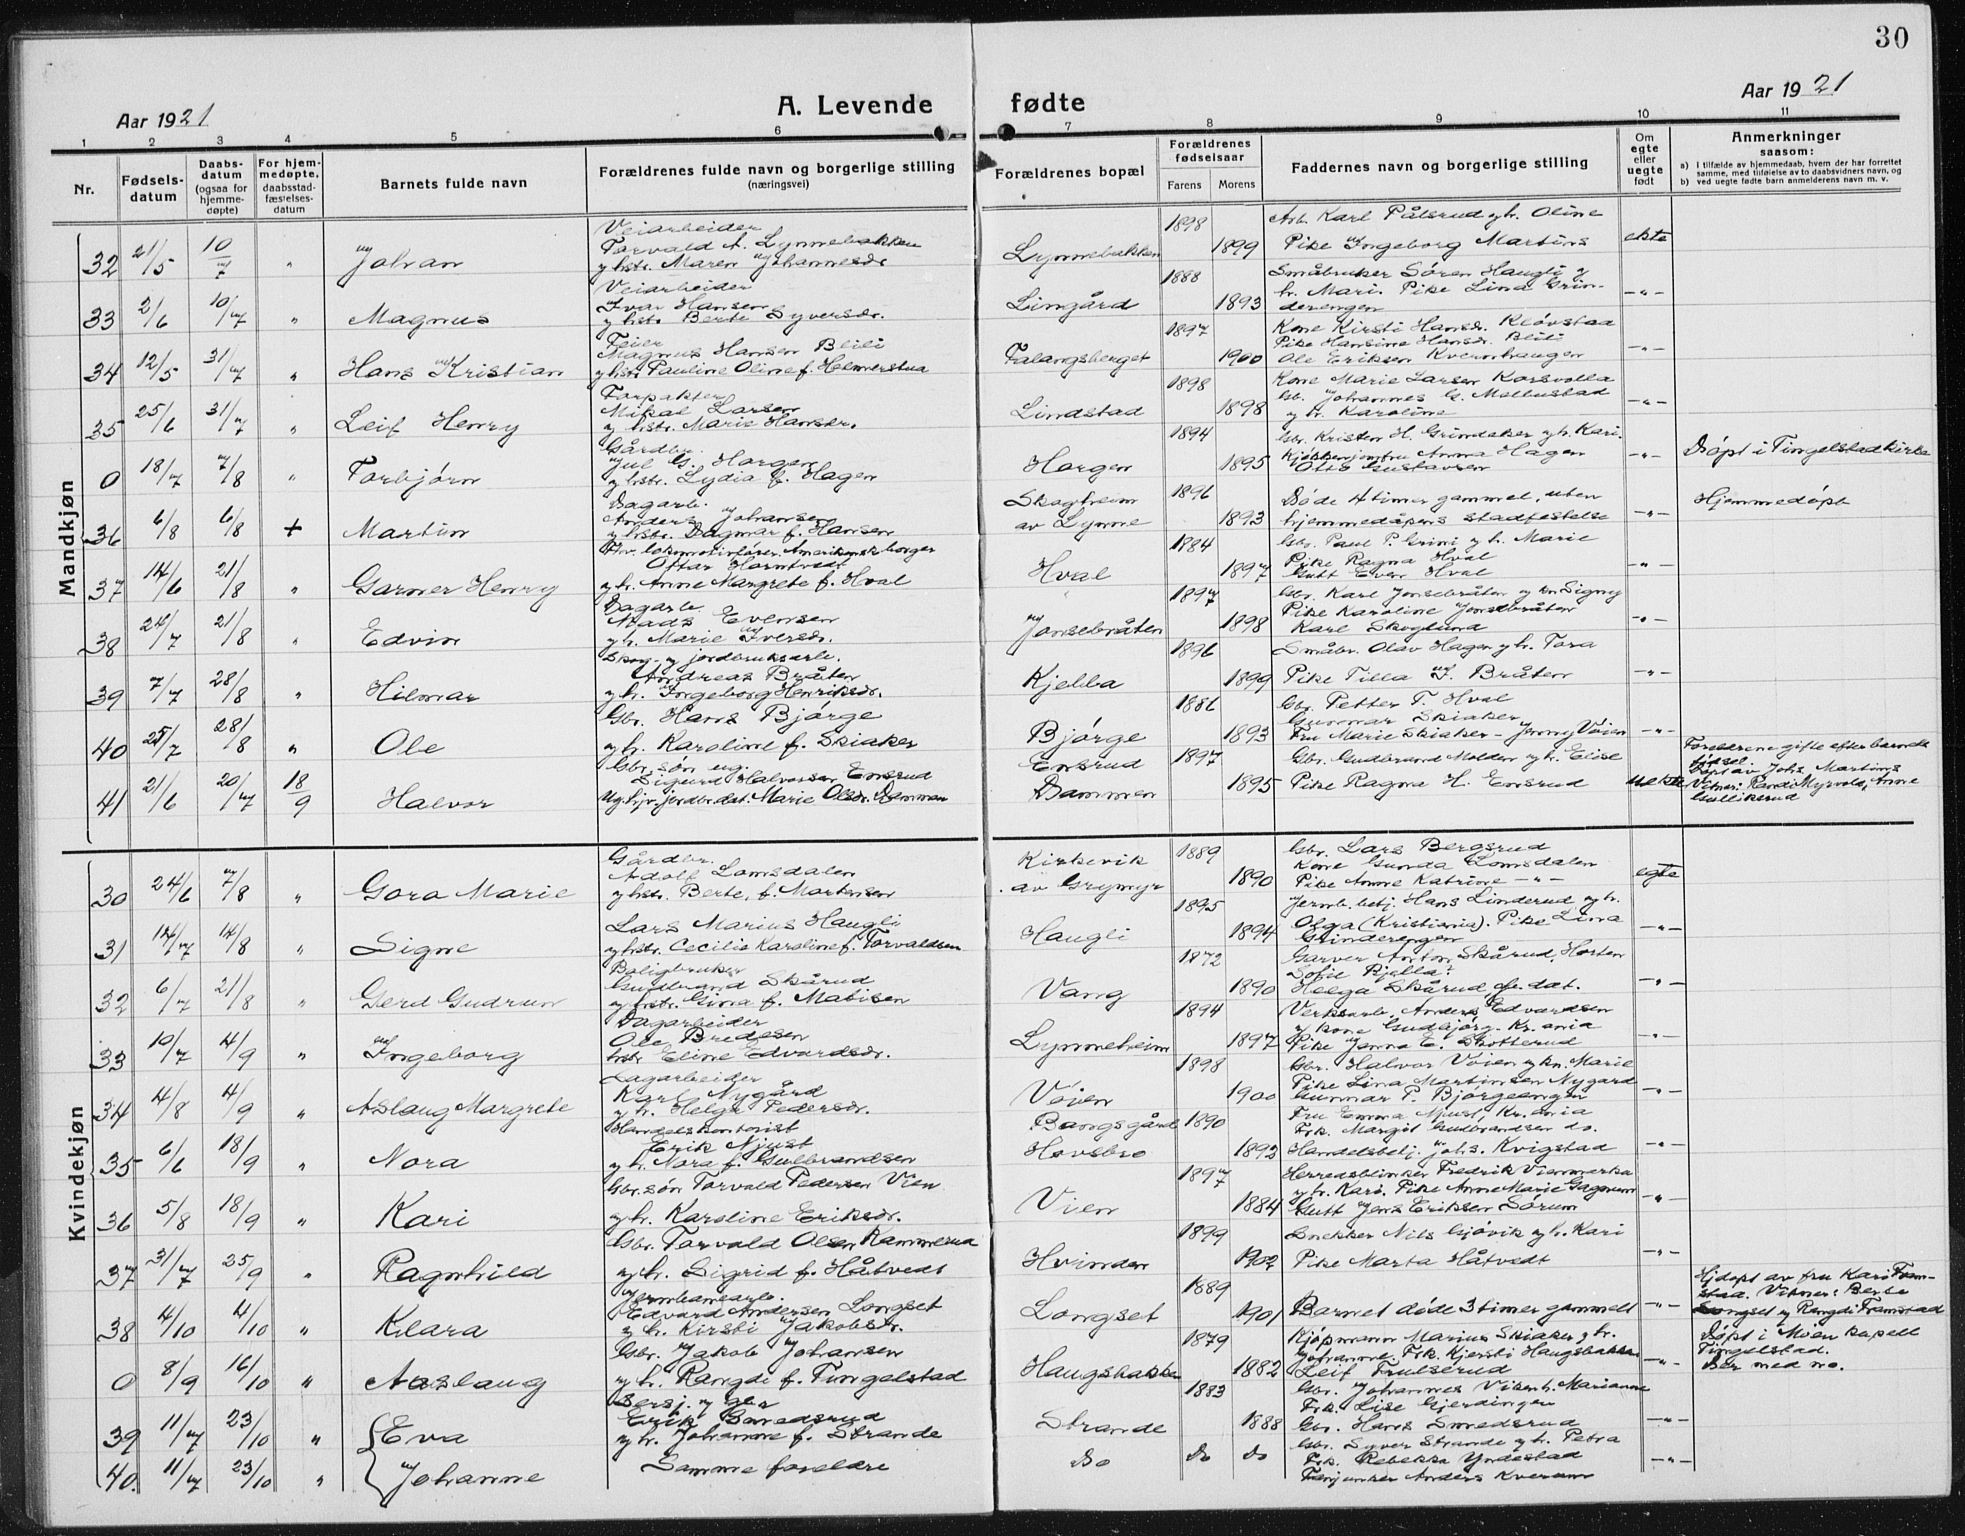 30
Aar 1921
A. Levende fødte
Aar 1921
1 2 3 4 5 6 7 8 9 10 11
Nr.
Fødsels-
datum
Daabs-
datum
(ogsaa for
hjemme-
døpte)
For hjem-
medøpte,
daabsstad-
fæstelses-
datum
Barnets fulde navn
Forældrenes fulde navn og borgerlige stilling
(næringsvei)
Forældrenes bopæl
Forældrenes
fødselsaar
Farens Morens
Faddernes navn og borgerlige stilling
Om
egte
eller
uegte
født
Anmerkninger
saasom:
a) I tilfælde av hjemmedaab, hvem der har forrettet
samme, med tilføielse av to daabsvidners navn, og
b) ved uegte fødte barn anmelderens navn m. v.
Mandkjøn
32 21/5 10/7 " Johan
Veiarbeider
Torvald A. Lynnebakken
og hstr. Maren Johannesdr
Lynnebakken 1898 1899
Arb. Karl Pålsrud og h. Oline
Pike Ingeborg Martins
ekte
33 2/6 10/7 " Magnus
Veiarbeider
Ivar Hansen
og hstr. Berte Syversdr.
Limgård 1888 1893
Småbruker Søren Haugli og
h. Mari. Pike Lina Grin-
derengen
-"-
34 12/5 31/7 " Hans Kristian
Feier
Magnus Hansen Blili
og hstr. Pauline Oline f. Helmerstua
Falangsberget 1897 1900
Kone Kirsti Hansdr. Kløvstad
Pike Hansine Hansdr. Blili
Ole Eriksen Kvernhaugen
-"-
35 25/6 31/7 " Leif Henry
Forpakter
Mikal Larsen
og hstr. Marie Hansdr.
Lindstad 1898 1898
Kone Marie Larsen Korsvolla
Gb. Johannes G. Mollustad
og h. Karoline
-"-
0 18/7 7/8 " Torbjørn
Gårdbr.
Jul G. Horgen
og hstr. Lydia f. Hagen
Horgen 1894 1895
Gbr. Kristen H. Grindaker og h. Kari.
Kjøkkenjomfru Anna Hagen
Otto Gustavsen
-"-
Døpt i Tingelstad kirke
36 6/8 6/8 + Martin
Dagarb.
Anders Johansen
og hstr. Dagmar f. Hansen
Skogheim
av Lynne 1896 1893
Døde 4 timer gammel, uten
hjemmedåpens stadfestelse
-"-
Hjemmedøpt
37 14/6 21/8 " Garner Henry
Fhv. lokomotivfører. Amerikansk borger
Ottar Horntvedt
og h. Anne Margrete f. Hval
Hval 1884 1897
Gbr. Paul P. Grini og h. Marie
Pike Ragna Hval
Gutt Even Hval
-"-
38 24/7 21/8 " Edvin
Dagarb.
Mads Evensen
og h. Marie Iversdr.
Jonsebråten 1897 1898
Gbr. Karl Jonsebråten og kn Signy
Pike Karoline Jonsebråten
Karl Skoglund
-"-
39 7/7 28/8 " Hilmar
Skog- og jordbruksarb.
Andreas Bråten
og h. Ingeborg Henriksdr.
Kjebba 1896 1899
Småbr. Olav Hagen og h. Tora
Pike Tilla I. Bråten
-"-
40 25/7 28/8 " Ole
Gbr. Hans Bjørge
og h. Karoline f. Skiaker
Bjørge 1886 1893
Gbr. Petter T. Hval
Gunnar Skiaker
Fru Marie Skiaker - Jenny Vøien
-"-
41 21/6 20/7 18/9 Halvor
Gbr. søn ug.
Sigurd Halvorsen Ensrud
Ug. hjv. jordbr. dat. Marie Olsdr. Dammen
Ensrud
Dammen 1897 1895
Gbr. Gudbrand Molden og h. Elise
Pike Ragna H. Ensrud
uekte
Foreldrene gifte efter barnets
fødsel.
Døpt av Johs. Martins
Vitner: Randi Myrvold, Anne
Gulliksrud
Kvindekjøn
30 24/6 7/8 " Gora Marie
Gårdbr.
Adolf Lomsdalen
og hstr. Berte, f. Martinsen
Kirkevik
av Grymyr 1889 1890
Gbr. Lars Bergsrud
Kone Gunda Lomsdalen
Pike Anne Katrine -"-
egte
31 14/7 14/8 " Signe
Lars Marius Haugli
og hstr. Cecilie Karoline f. Torvaldsen
Haugli 1895 1894
Jernb. betj. Hans Linderud og h.
Olga (Kristiania). Pike Lina
Grinderengen
-"-
32 6/7 21/8 " Gerd Gudrun
Boligbruker
Gundbrand Skårud
og hstr. Gina f. Mobisen
Vang 1872 1890
Garver Anton Skårud, Horten
Sofie Bjella
Helga Skårud, dat.
-"-
33 10/7 4/9 " Ingeborg
Dagarbeider
Ole Bredesen
hstr. Eline Edvardsdr.
Lynneheim 1894 1897
Verksarb. Anders Edvardsen
og kone Gudbjørg. Kr.ania
Pike Jenna E. Skotterud
-"-
34 4/8 4/9 " Aslaug Margrete
Dagarbeider
Karl Nygård
og h. Helga Pedersdr.
Vøien 1898 1900
Gbr. Halvor Vøien og kn. Marie
Pike Lina Martinsen Nygård
Gunnar P. Bjørgeengen
-"-
35 6/6 18/9 " Nora
Handelskontorist
Erik Njust
og h. Nora f. Gulbrandsen
Bangsgård
Hovsbro 1890 1892
Fru Emma Njust, Kr.ania
Frk. Margit Gudbrandsen do.
Handelsbetj. Johs. Kvigstad
-"-
36 5/8 18/9 " Kari
Gbr.søn Torvald Pedersen Vien
og h. Karoline Eriksdr.
Vien 1897 1884
Herredsbinker Fredrik Vienmarka
og h. Kari. Pike Anne Marie Gagnum
Gutt Jens Eriksen Sørum
-"-
37 31/7 25/9 " Ragnhild
Gbr. Torvald Olsen Kammerud
og h. Sigrid f. Håtvedt
Hvinden 1899 1902
Snekker Nils Gjøvik og h. Kari
Pike Marta Håtvedt
-"-
38 4/10 4/10 " Klara
Jernbanearb.
Edvard Andersen Longset
og h. Kirsti Jakobsdr.
Longset 1889 1901
Barnet døde 3 timer gammelt
-"-
Hjdøpt av fru Kari Fram-
stad. Vitner: Berte
Longset og Rangdi Framstad
0 8/9 16/10 " Aaslaug
Gbr. Jakob Johansen
og h. Rangdi f. Tingelstad
Haugsbakken 1879 1882
Kjøpmann Marius Skiaker og h.
Johanne. Frk. Kjersti Haugsbakken
Leif Trulserud
-"-
Døpt i Moen kapell
Tingelstad.
Ber med no.
39 11/7 23/10 " Eva
Sersj. og gbr
Erik Smedsrud
og h. Johanne f. Strande
Strande 1883 1888
Gbr. Johannes Vien h. Marianne
Frk. Lise Gjerdingen
Gbr. Hans Smedsrud
-"-
40. 11/7 23/10 " Johanne
Samme foreldre
Do Do Do
Gbr. Syver Strande og h. Petra
Frk. Rebekka Yndestad
Fanjunker Anders Kverum
-"-